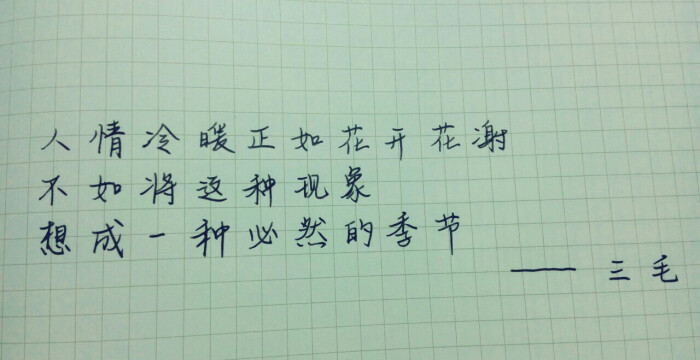 人情冷暖正如花开花谢
不如将这种现象
想成一种必然的季节
—— 三毛